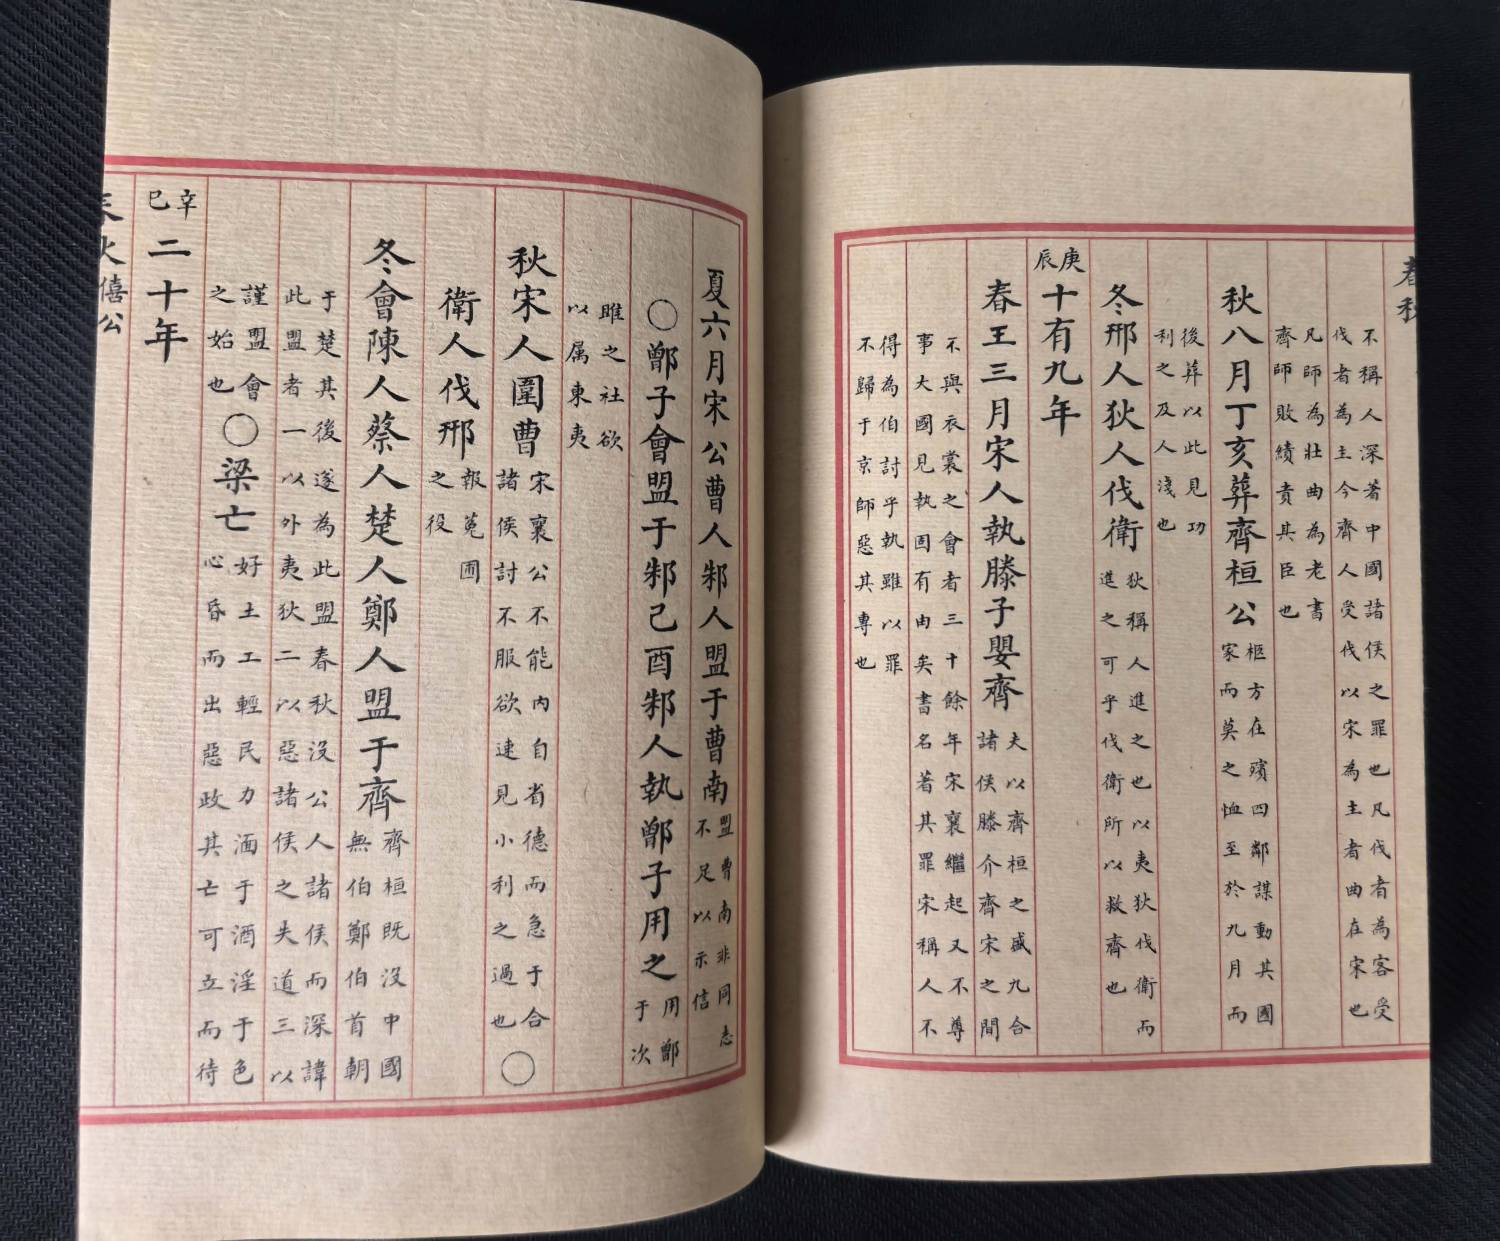 春秋
不稱人深著中國諸侯之罪也凡伐者為客受
伐者為主今齊人受伐以宋為主者曲在宋也
凡師為壯曲為老書
齊師敗績責其臣也
秋八月丁亥葬齊桓公
柩方在殯四鄰謀動其國
家而莫之恤至於九月而
後葬以此見功
利之及人淺也
冬邢人狄人伐衛
狄稱人進之也以夷狄伐衛而
進之可乎伐衛所以救齊也
庚辰
十有九年
春王三月宋人執滕子嬰齊
夫以齊桓之盛九合
諸侯滕介齊宋之間
不與衣裳之會者三十餘年宋襄繼起又不尊
事大國見執固有由矣書名著其罪宋稱人不
得為伯討乎執雖以罪
不歸于京師惡其專也
夏六月宋公曹人邾人盟于曹南
盟曹南非同志
不足以示信
〇鄫子會盟于邾己酉邾人執鄫子用之
用鄫
于次
睢之社欲
以属東夷
秋宋人圍曹
宋襄公不能內自省德而急于合
諸侯討不服欲速見小利之過也〇
衛人伐邢
報菟圃
之役
冬會陳人蔡人楚人鄭人盟于齊
齊桓既沒中國
無伯鄭伯首朝
于楚其後遂為此盟春秋沒公人諸侯而深諱
此盟者一以外夷狄二以惡諸侯之失道三以
謹盟會
之始也
〇梁亡
好土工輕民力湎于酒淫于色
心昏而出惡政其亡可立而待
辛巳
二十年
僖公